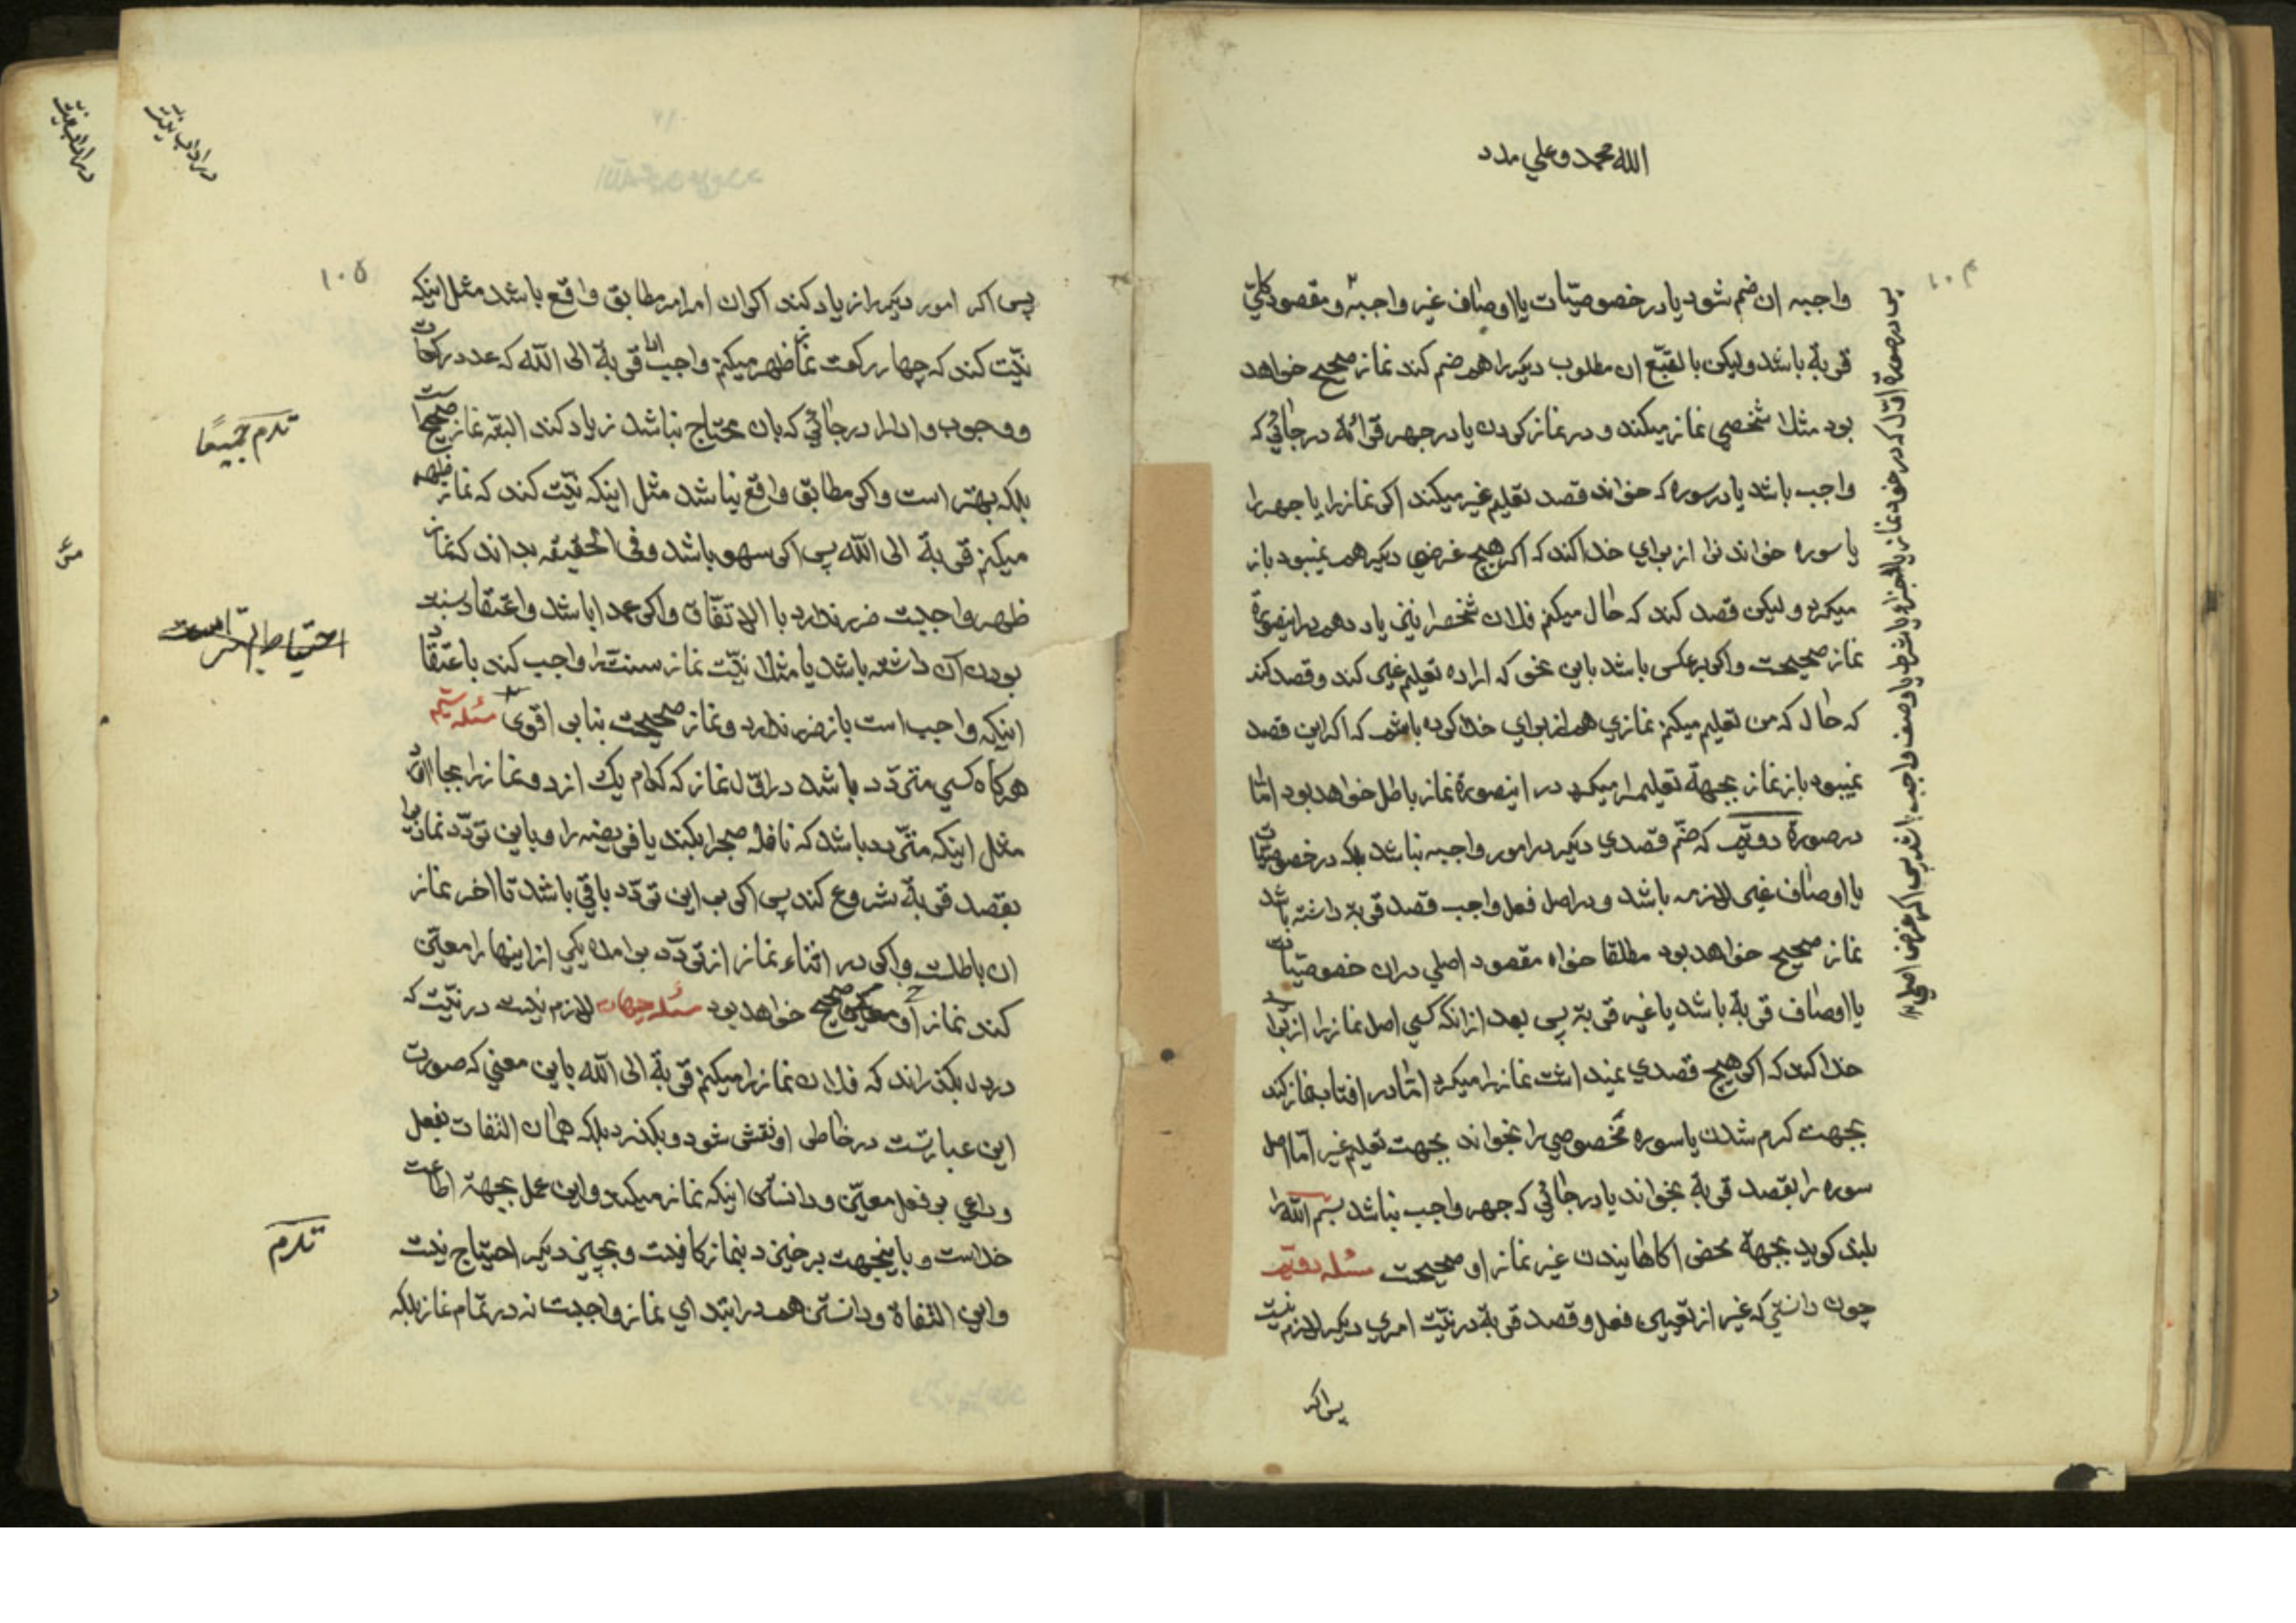 الله محمد وعلي مدد
۱۰۴
واجبه ان ضم شود یا در خصوصیّات یا اوصاف غیر واجبه و مقصود کلّیّ
قربة باشد ولیکن بالتّبع ان مطلوب دیکر را هم ضم کند نماز صحیح خواهد
بود مثلا شخصی نماز میکند و در نماز کردن یا در جهر قرائة در جائی که
واجب باشد یا در سوره که خواند قصد تعلیم غیر میکند اکر نماز را یا جهر را
یا سوره خواندنرا از برای خدا کند که اکر هیچ غرضی دیکر هم نمیبود باز
میکرد ولیکن قصد کند که حال میکنم فلان شخصرا نیز یاد دهم در اینصورة
نماز صحیحست واکر برعکس باشد باین نحو که اراده تعلیم غیر کند و قصد کند
که حال که من تعلیم میکنم نمازی هم از برای خدا کرده باشم که اکر این قصد
نمیبود باز نماز بجهة تعلیم را میکرد در اینصورة نماز باطل خواهد بود امّا
در صورة دویّم که ضمّ قصدی دیکر در امور واجبه نباشد بلکه در خصوصیّات
یا اوصاف غیر لازمه باشد و در اصل فعل واجب قصد قربة داشته باشد
نماز صحیح خواهد بود مطلقا خواه مقصود اصلی دران خصوصیّات
یا اوصاف قربة باشد یا غیر قربة پس بعد از انکه کسی اصل نماز را از برای
خدا کند که اکر هیچ قصدی نمیداشت نماز را میکرد امّا در افتاب نماز کند
بجهت کرم شدن یا سوره مخصوصی را بخواند بجهت تعلیم غیر امّا اصل
سوره را بقصد قربة بخواند یا در جائی که جهر واجب نباشد بسم الله را
بلند کوید بجهة محض اکاهانیدن غیر نماز او صحیحست مسئله دویّم
چون دانستی که غیر از تعیین فعل و قصد قربة در نیّت امری دیکر لازم نیست
پس اکر
پس در صورة اوّل که در خود نماز یا اجزا و یا شرط یا وصف واجب باشد پس اکر غرض اصلی
۱۰۵
پس اکر امور دیکر را زیاد کند اکر ان امر امر مطابق واقع باشد مثل اینکه
نیّت کند که چهار رکعت نماز ظهر میکنم واجب ادا قربة الی الله که عدد رکعات
و وجوب و ادا را در جائی که بان محتاج نباشد زیاد کند البتّه نماز صحیح است
بلکه بهتر است واکر مطابق واقع نباشد مثل اینکه نیّت کند که نماز ظهر
میکنم قربة الی الله پس اکر سهو باشد و فی الحقیقه بداند که نماز
ظهر واجبست ضرر ندارد بالاتّفاق واکر عمدا باشد و اعتقاد سنّت
بودن ان داشته باشد یا مثلا نیّت نماز سنّت را واجب کند باعتقاد
اینکه واجب است باز ضرر ندارد و نماز صحیحست بنا بر اقوی مسئله سیّم
هرکاه کسی متردّد باشد در اوّل نماز که کدام یک از دو نماز را بجا اورد
مثل اینکه متردد باشد که نافله صبح را بکند یا فریضه را و باین تردّد نماز را
بقصد قربة شروع کند پس اکر بر این تردّد باقی باشد تا اخر نماز
ان باطلست واکر در اثناء نماز از تردّد برامده یکی از اینها را معیّن
کند نماز او صحیح خواهد بود مسئله چهارم لازم نیست در نیّت که
در دل بکذراند که فلان نماز را میکنم قربة الی الله باین معنی که صورت
این عبارتست در خاطر او نقش شود و بکذرد بلکه همان التفات بفعل
و داعی بر فعل معیّن و دانستن اینکه نماز میکند و این عمل بجهة اطاعت
خداست و باینجهت برخیزد بنماز کافیست و بچیز دیکر احتیاج نیست
و این التفاة و دانستن هم در ابتدای نماز واجبست نه در تمام نماز بلکه
تدم جمیعًا
احتیاط بهتر است
تدم